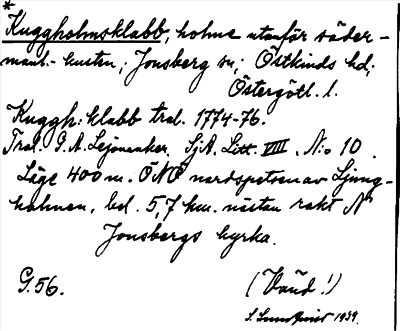 *
Kuggholmsklabb, holme utanför söder-
manl.-kusten; Jonsberg sn; Östkinds hd;
Östergötl. l.
Kuggh:klabb tral. 1774-76.
Tral. G.A. Lejonanker, SjA. Litt. VIII, N:o 10.
Läge 400 m. ÖNÖ nordspetsen av Ljung-
holmen, bel. 5,7 km. nästan rakt N
Jonsbergs kyrka.
G.56. (Vänd!)
S. Sundqvist 1939.